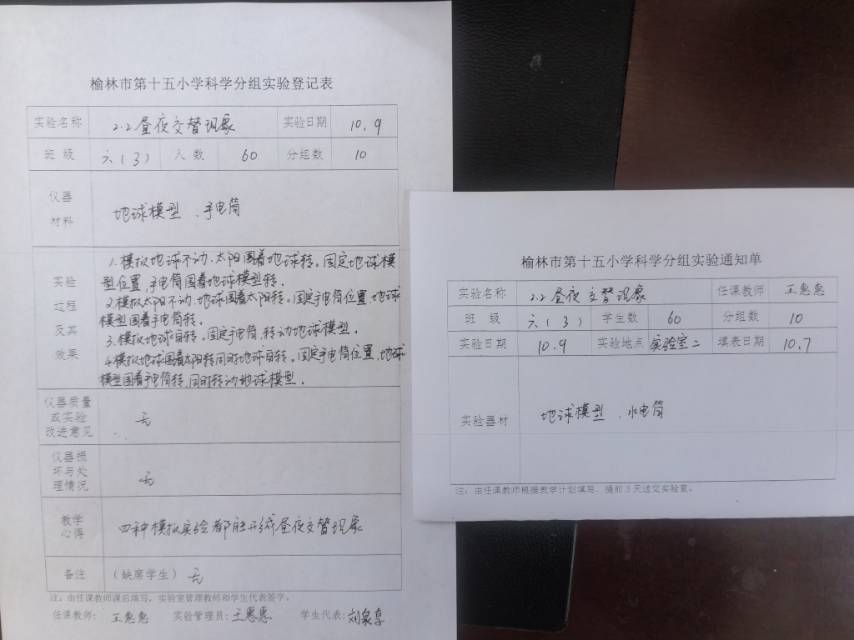 榆林市第十五小学科学分组实验登记表
实验名称 2.2昼夜交替现象 实验日期 10.9
班级 六(3) 人数 60 分组数 10
仪器材料 地球模型、手电筒
实验过程及其效果
1.模拟地球不动,太阳围着地球转。固定地球模
型位置,手电筒围着地球模型转。
2.模拟太阳不动,地球围着太阳转。固定手电筒位置,地球
模型围着手电筒转。
3.模拟地球自转。固定手电筒,转动地球模型。
4.模拟地球围着太阳转同时地球自转。固定手电筒位置,地球
模型围着手电筒转,同时转动地球模型。
仪器质量
或实验
改进意见 无
仪器损
坏与处
理情况 无
教学
心得 四种模拟实验都能形成昼夜交替现象
备注 (缺席学生) 无
注:由任课教师课后填写,实验室管理教师和学生代表签字。
任课教师: 王惠惠 实验管理员: 王惠惠 学生代表:
榆林市第十五小学科学分组实验通知单
实验名称 2.2昼夜交替现象 任课教师 王惠惠
班级 六(3) 学生数 60 分组数 10
实验日期 10.9 实验地点 实验室二 填表日期 10.7
实验器材 地球模型、小电筒
注:由任课教师根据教学计划填写,提前3天送交实验室。